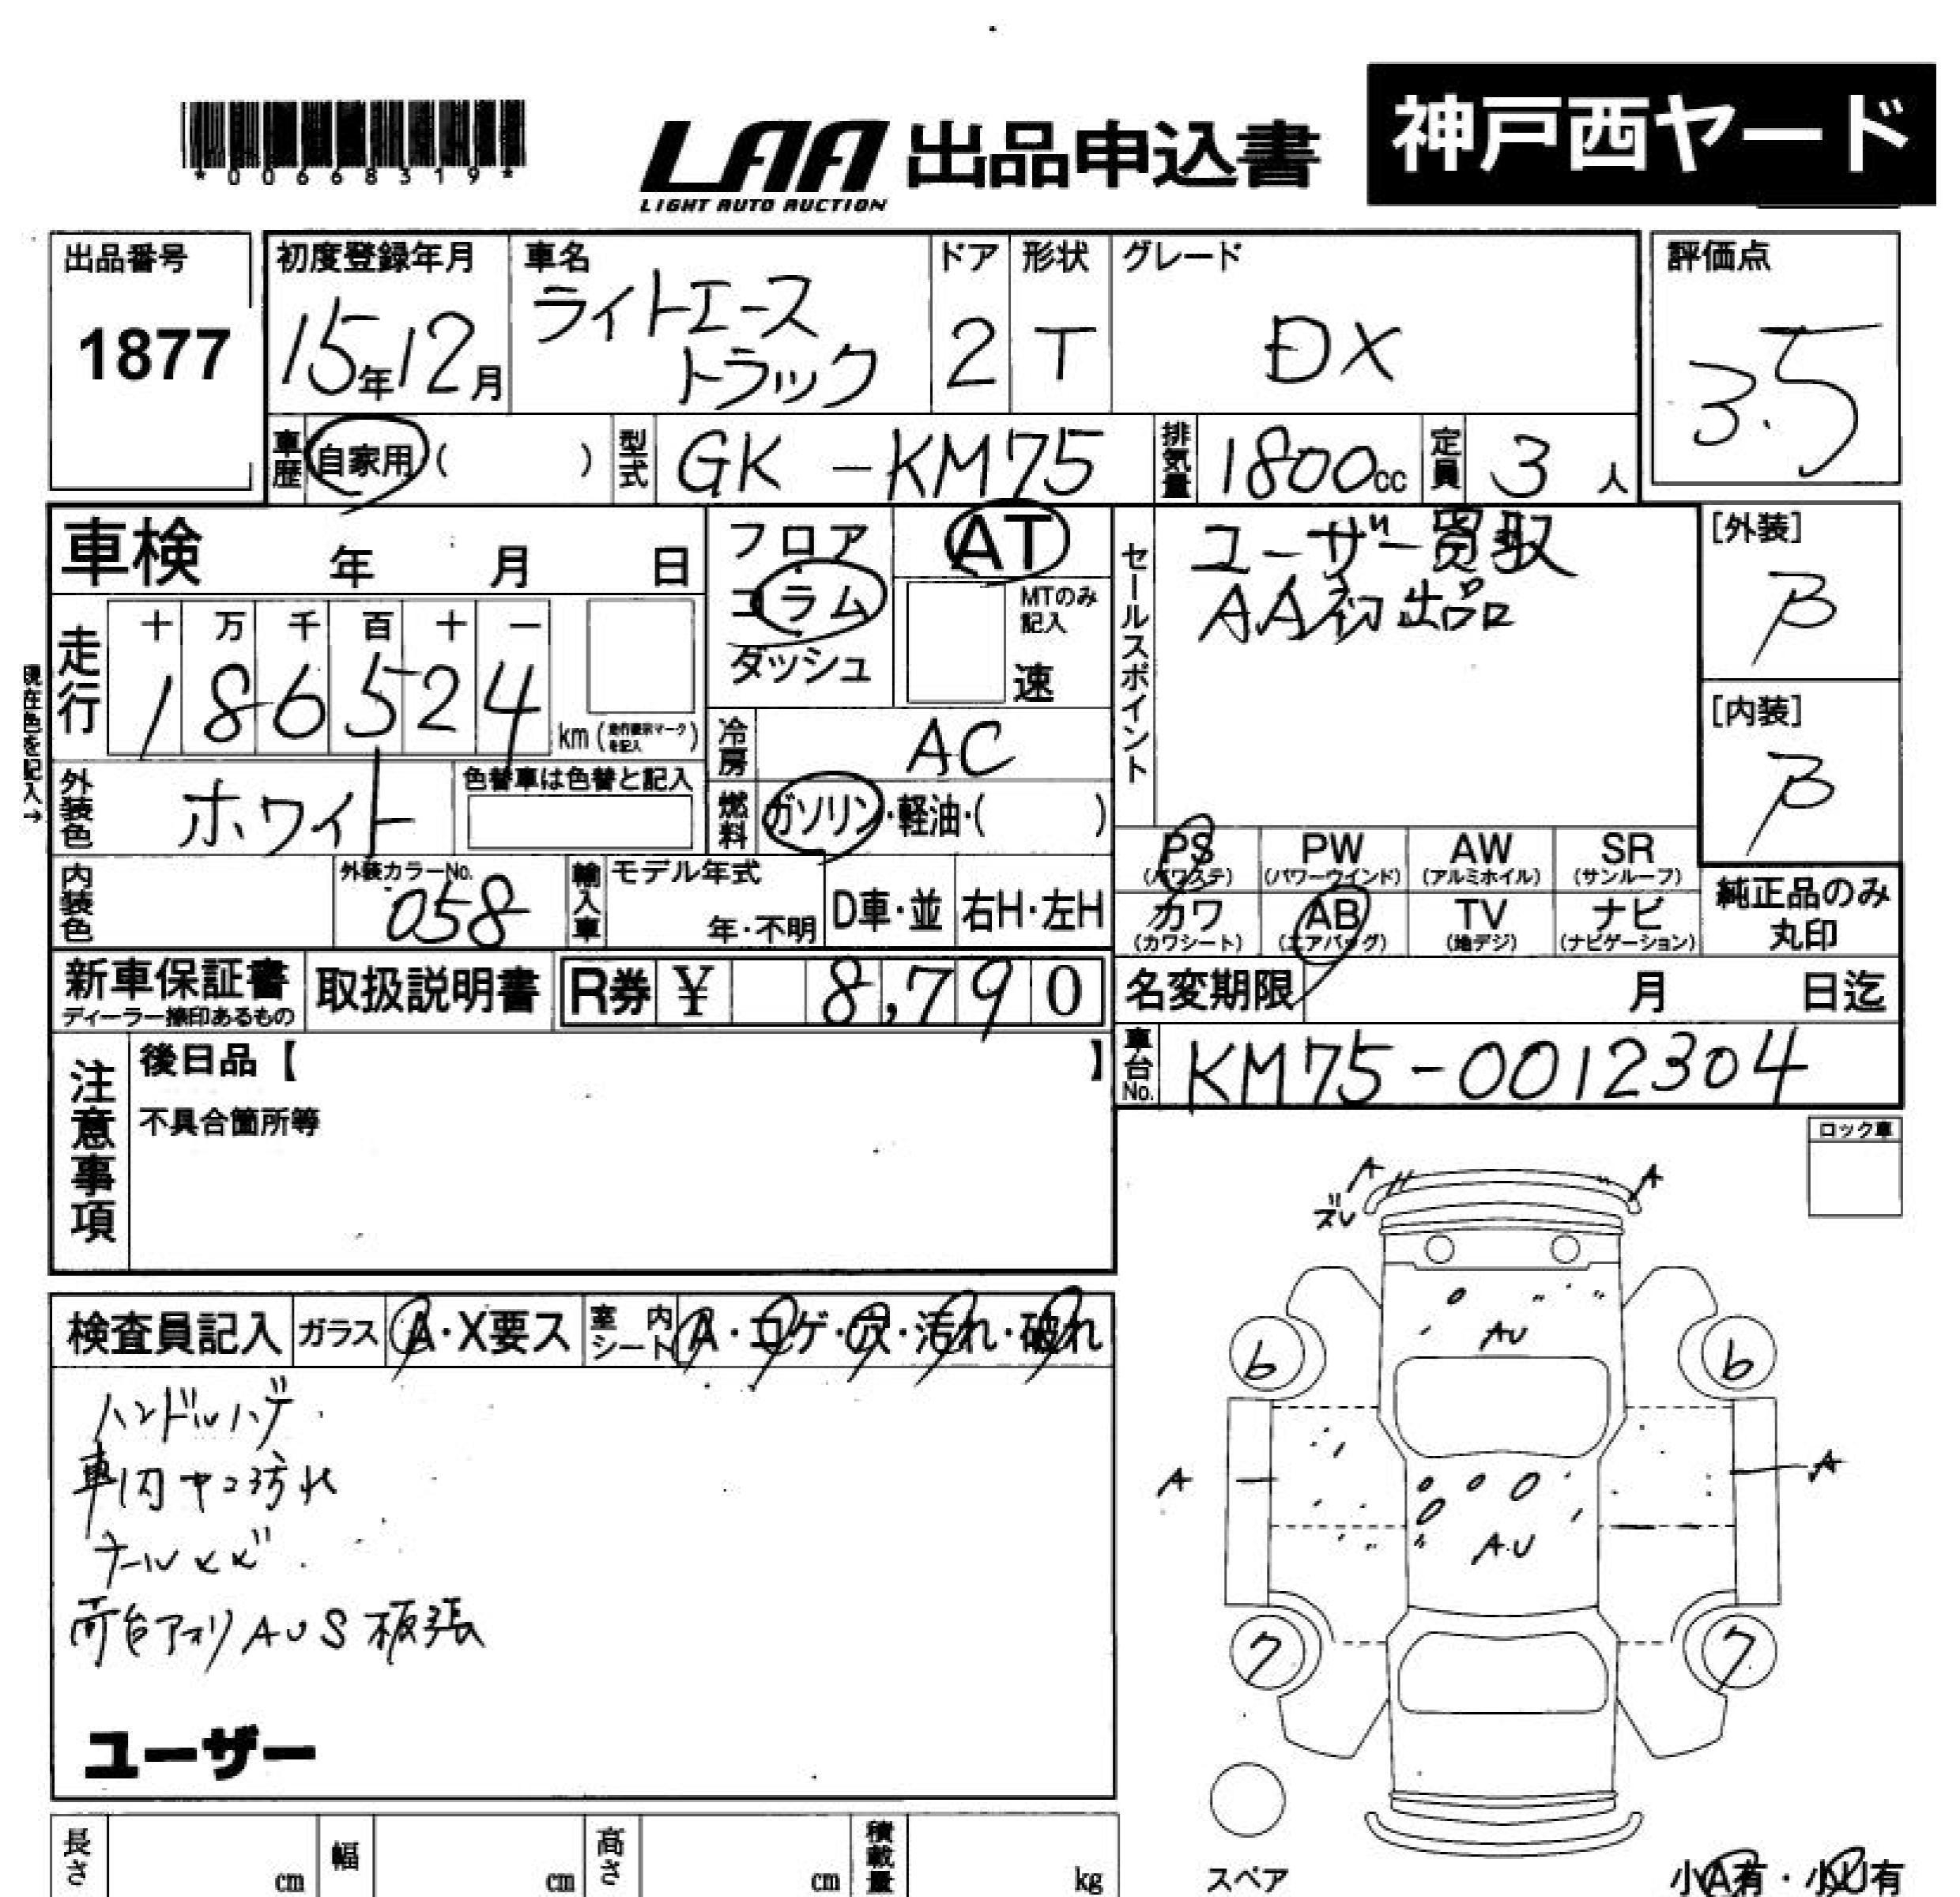 *00668319*
LAA 出品申込書 神戸西ヤード
LIGHT AUTO AUCTION
出品番号 1877
初度登録年月 15年12月
車名 ライトエース トラック
ドア 2
形状 T
グレード DX
評価点 3.5
車歴 自家用 ( )
型式 GK-KM75
排気量 1800cc
定員 3人
車検 年 月 日
フロア
コラム
ダッシュ
AT
MTのみ記入
速
セールスポイント
ユーザー買取
AA初出品
[外装] B
[内装] B
現在色を記入→
走行 十 万 千 百 十 一
186524
km (走行表示マークを記入)
冷房 AC
外装色 ホワイト
色替車は色替と記入
燃料 ガソリン・軽油・( )
PS (パワステ) PW (パワーウインド) AW (アルミホイル) SR (サンルーフ)
カワ (カワシート) AB (エアバッグ) TV (地デジ) ナビ (ナビゲーション)
純正品のみ丸印
内装色
外装カラーNo. 058
輸入車 モデル年式 年・不明 D車・並 右H・左H
新車保証書 ディーラー捺印あるもの
取扱説明書
R券 ¥ 8,790
名変期限 月 日迄
車台No. KM75-0012304
注意事項
後日品【 】
不具合箇所等
ロック車
検査員記入 ガラス A・X要ス 室内シート A・コゲ・穴・汚れ・破れ
ハンドルハゲ
車内ヤニ汚れ
荷台アオリ AUS 板張
ユーザー
A A
ズレ
AU
6 6
A A
A.U
7 7
スペア
小A有・小U有
長さ cm 幅 cm 高さ cm 積載量 kg